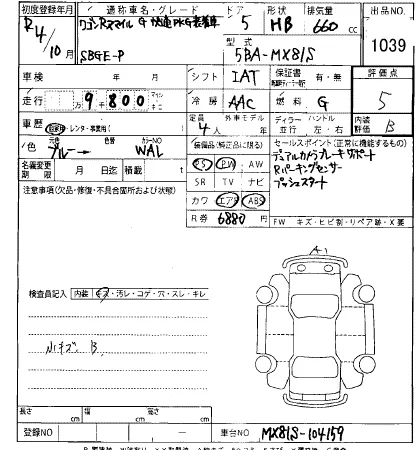 初度登録年月 通称車名・グレード ドア 形状 排気量 出品NO.
R4/10月 ワゴンRスマイル G 快適PKG装着車 5 HB 660 cc 1039
SBGE-P 型式 5BA-MX81S
車検 年 月 シフト IAT 保証書 有・無 評価点
走行 9 800 冷房 AAC 燃料 G 5
車歴 自家用・レンタ・事業用( ) 定員 4人 外車モデル 年 ディーラー 並行 ハンドル 左・右 内装評価 B
色 元色 ブルー → 色替 カラーNO WAL 装備品(純正品に限る) セールスポイント(正常に機能するもの)
名義変更期限 月 日迄 積載 t PS PW AW デュアルカメラブレーキサポート
注意事項(欠品・修復・不具合箇所および状態) SR TV ナビ Rパーキングセンサー
カワ エアB ABS プッシュスタート
R券 6880円 FW キズ・ヒビ割・リペア跡・X要
A1
検査員記入 内装 キズ・汚レ・コゲ・穴・スレ・キレ
小キズ B
長さ cm 幅 cm 高さ cm
登録NO - 車台NO MX81S-104159